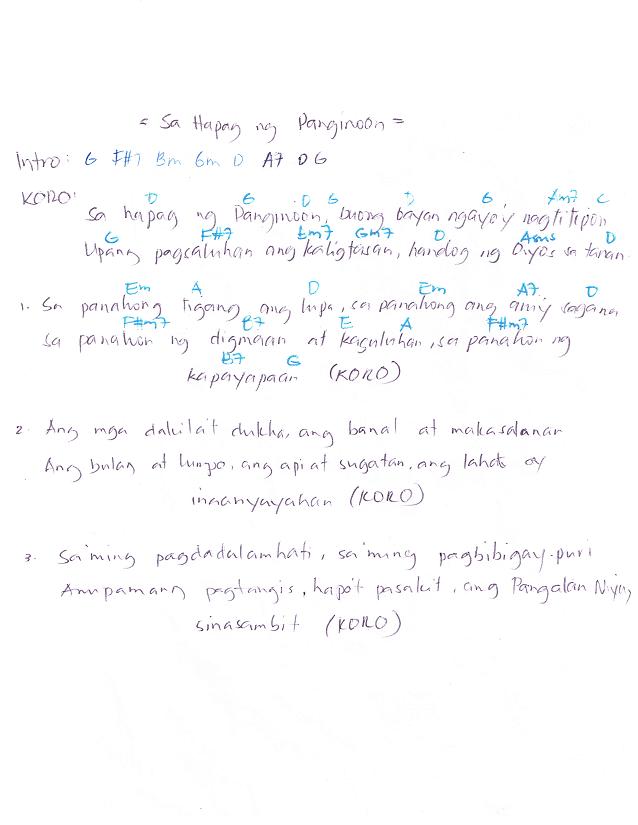 = Sa Hapag ng Panginoon =
Intro: G F#7 Bm Gm D A7 D G
KORO:
D G D G D G F#m7 C
Sa hapag ng Panginoon, buong bayan ngayo'y nagtitipon
G F#7 Em7 Gm7 D Asus D
Upang pagsaluhan ang kaligtasan, handog ng Diyos sa tanan.
Em A D Em A7 D
1. Sa panahong tigang ang lupa, sa panahong ang ani'y sagana
F#m7 B7 E A F#m7
sa panahon ng digmaan at kaguluhan, sa panahon ng
B7 G
kapayapaan (KORO)
2. Ang mga dakila't dukha, ang banal at makasalanan
Ang bulag at lumpo, ang api at sugatan, ang lahat ay
inaanyayahan (KORO)
3. Sa'ming pagdadalamhati, sa'ming pagbibigay-puri
Anupamang pagtangis, hapo't pasakit, ang Pangalan Niya'y
sinasambit (KORO)